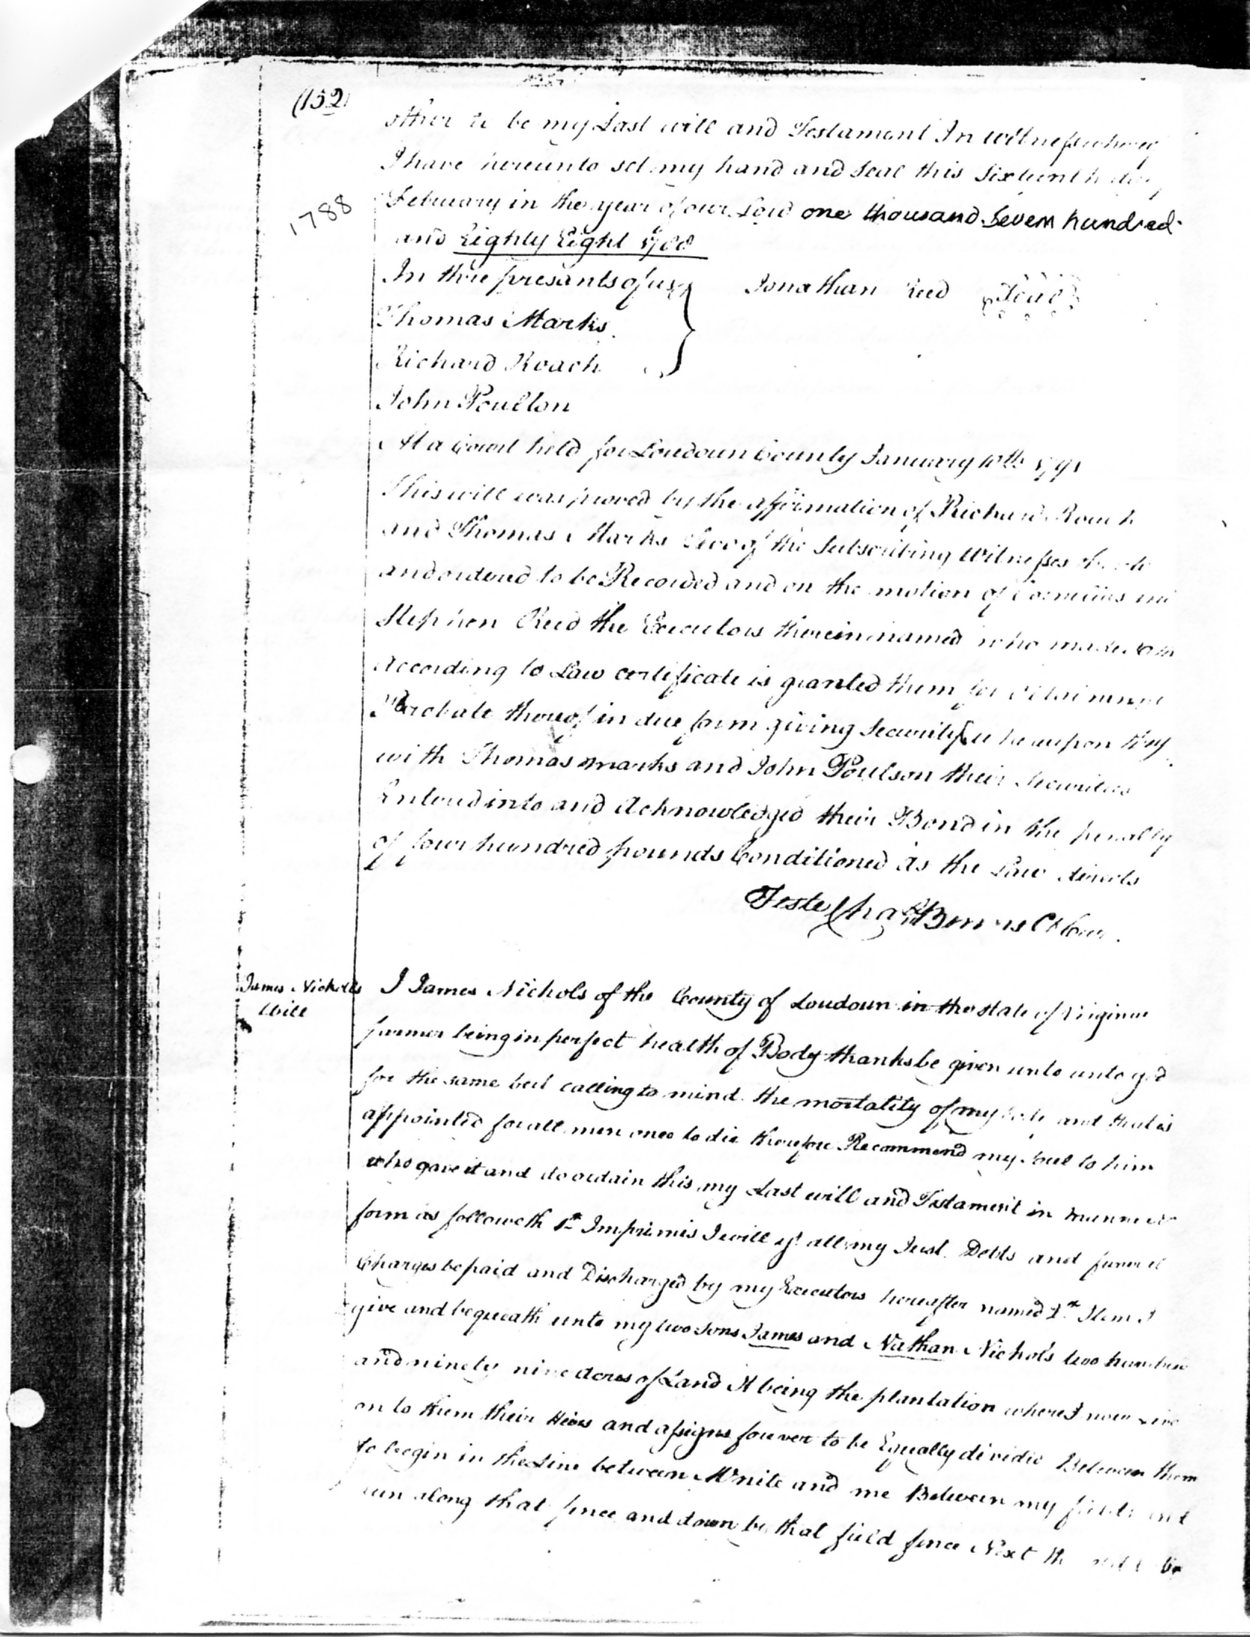 (152)
other to be my Last will and Testament In witness whereof
I have hereunto set my hand and seal this Sixteenth day
1788
February in the year of our Lord one thousand Seven hundred
and Eighty Eight 1788
In thee presants of us Jonathan Reed Seal
Thomas Marks
Richard Roach
John Poulton
At a Court held for Loudoun County January 10th 1791
This will was proved by the affirmation of Richard Roach
and Thomas Marks two of the Subscribing Witnesses
and ordered to be Recorded and on the motion of Cornelius
Stephen Reed the Executors therein named who made
According to Law certificate is granted them for obtaining
Probate thereof in due form giving Security whereupon they
with Thomas marks and John Poulson their Securities
Entered into and Acknowledged their Bond in the penalty
of four hundred pounds Conditioned as the Law directs
Teste Chas Binns Cl Cur.
James Nicholls
Will
I James Nichols of the County of Loudoun in the state of Virginia
farmer being in perfect health of Body thanks be given unto unto god
for the same but calling to mind the mortality of my and that is
appointed for all men once to die therefore Recommend my soul to him
who gave it and do ordain this my Last will and Testament in manner
form as followeth 1st Imprimis I will yt all my Just Debts and funeral
Charges be paid and Discharged by my Executors hereafter named Item I
give and bequeath unto my two sons James and Nathan Nichols two hundred
and ninety nine acres of Land It being the plantation where I now Live
on to them their Heirs and assigns forever to be Equally divided Between them
to begin in the Line between and me Between my fields and
run along that fence and down by that field fence Next the